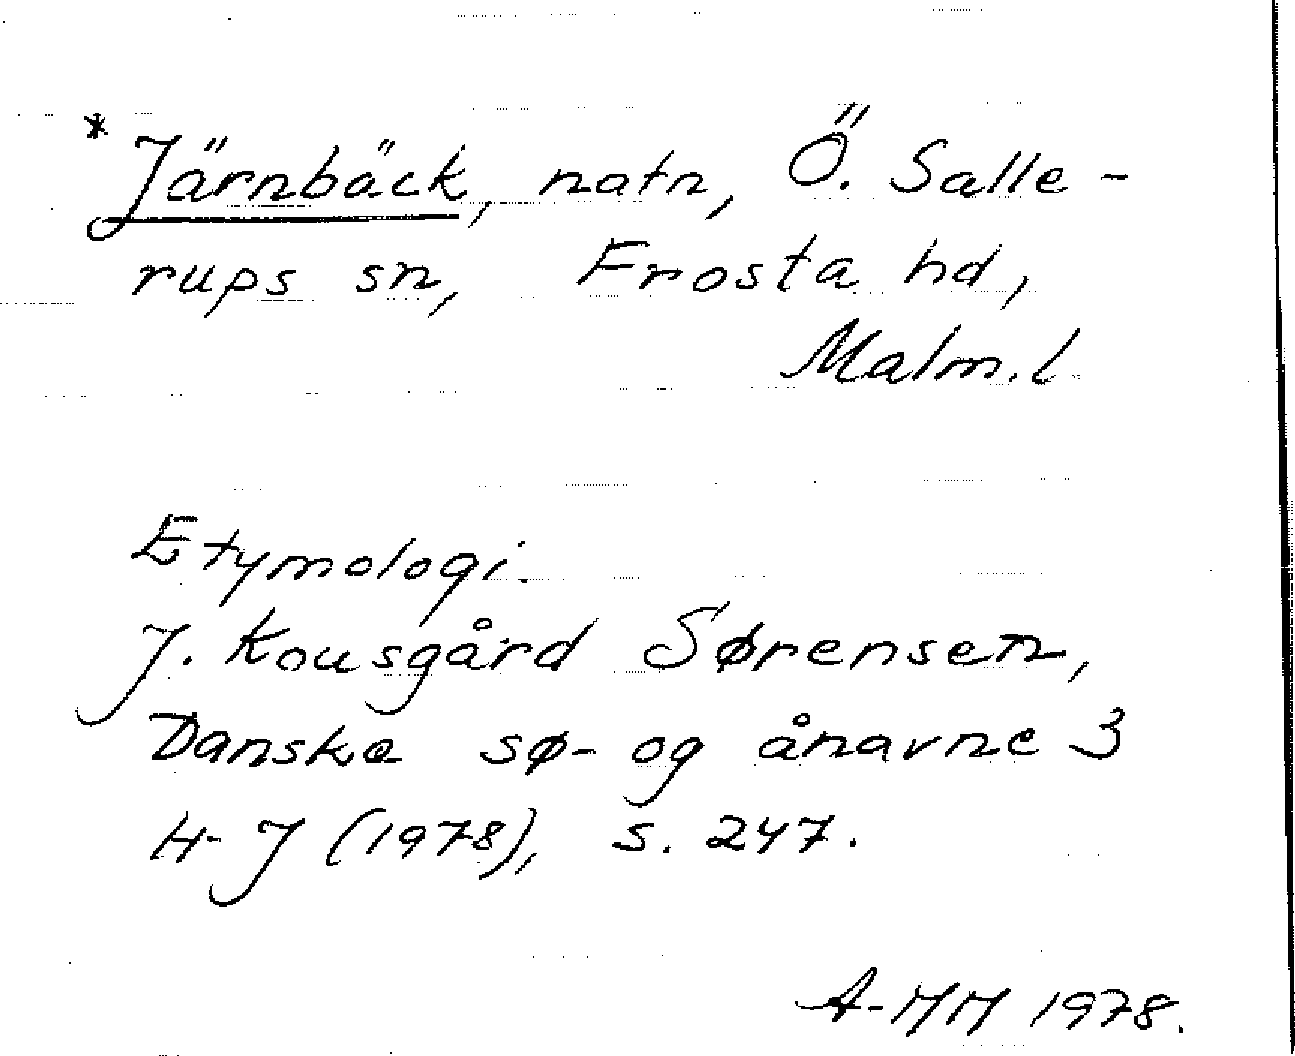 * Järnbäck, natn, Ö. Salle-
rups sn, Frosta hd,
Malm.l
Etymologi.
J. Kousgård Sørensen,
Danske sø- og ånavne 3
H-J (1978), s. 247.
A-MM 1978.